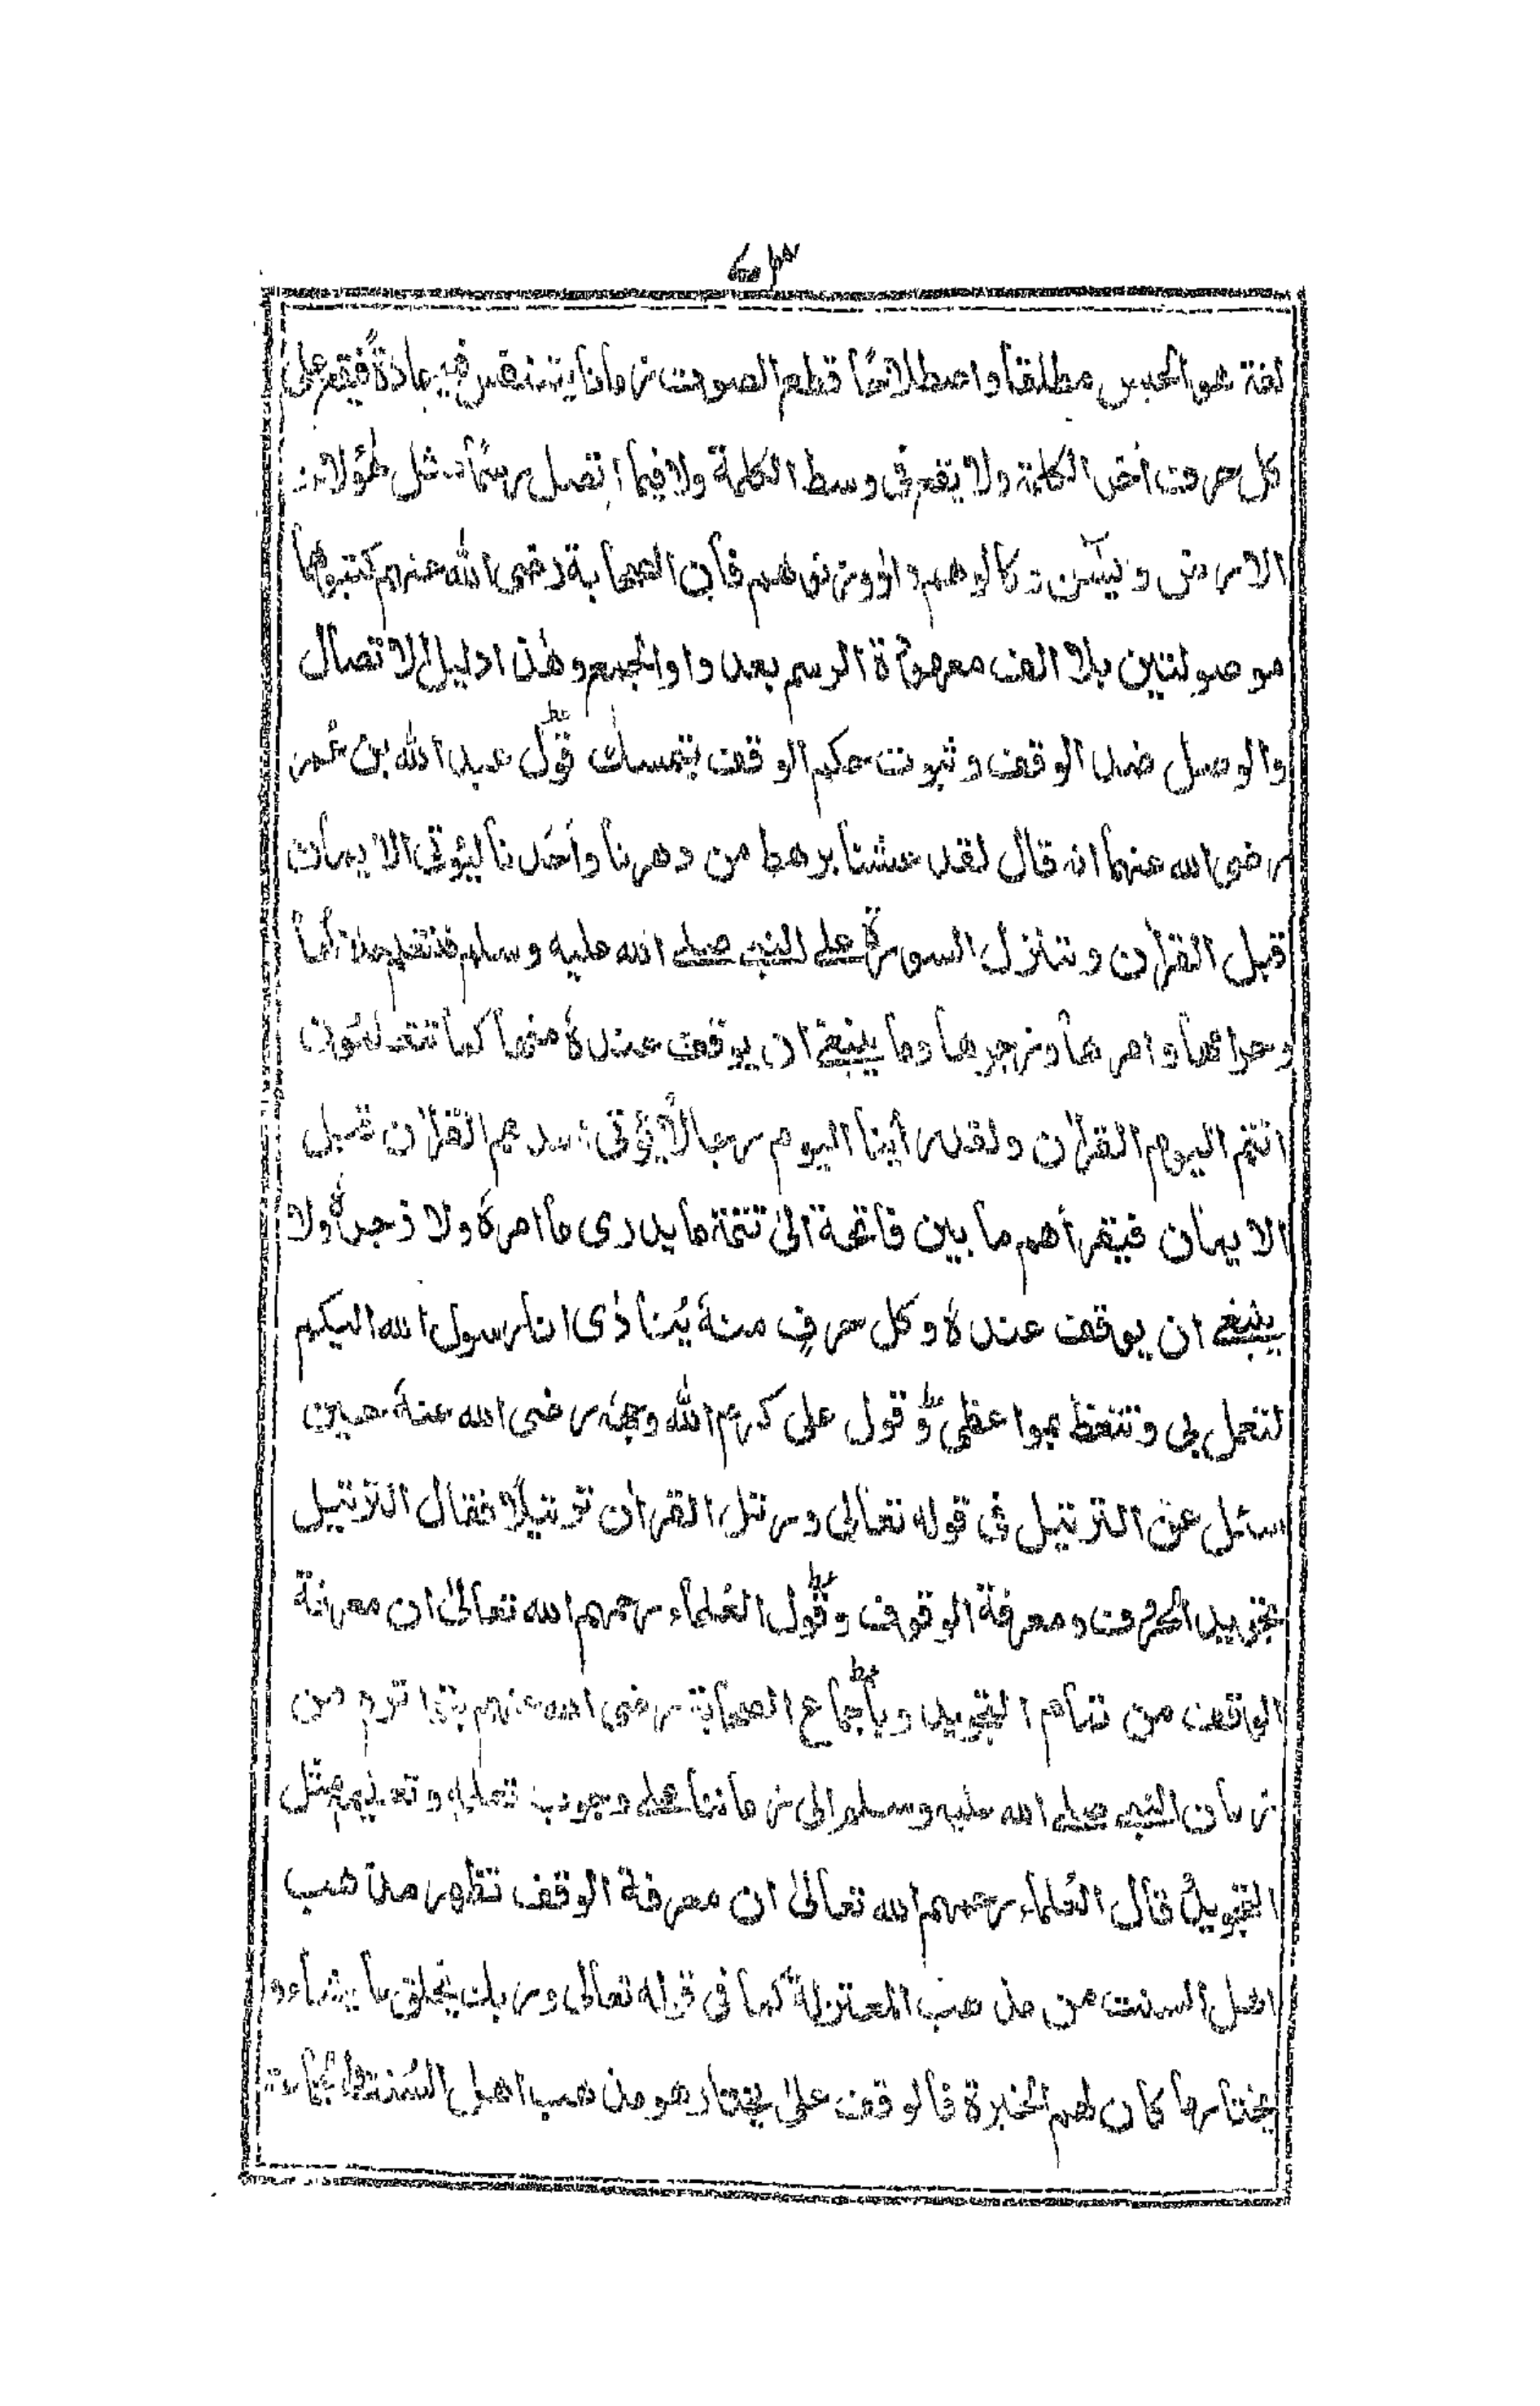 ۶۳
لغة هو الحبس مطلقاً واصطلاحًا قطع الصوت زمانا يتنفس فيه عادةً فيقع على
كل حرف اٰخر الكلمة ولا يقع فى وسط الكلمة ولا فيما اتصل رسمًا مثل هٰؤلاء
الارض و يٰسٓ و كالوهم و او وزنوهم فان الصحابة رضى الله عنهم كتبوهما
موصولتين بلا الف معهودة الرسم بعد واو الجمع وهٰذا دليل الاتصال
والوصل ضد الوقف و ثبوت حكم الوقف بتمسك قول عبد الله بن عُمر
رضى الله عنهما انه قال لقد عشنا برهط من دهرنا وأحدنا ليؤتى الايمان
قبل القراٰن و تنزل السورة على النبى صلى الله عليه وسلم فنتعلم حلالها
وحرامها و امرها و زجرها وما ينبغى ان يوقف عندهٗ منها كما تتعلمون
انتم اليوم القراٰن ولقد رأينا اليوم رجالًا يؤتى احدهم القراٰن قبل
الايمان فيقرأهم ما بين فاتحة الىٰ تتمة ما يدرى ما امرهٗ ولا زجرهٗ ولا
ينبغى ان يوقف عندهٗ و كل حرفٍ منهٗ يُنادٰى انا رسول الله اليكم
لتعمل بى و تتعظ بمواعظى وقول على كرم الله وجهه رضى الله عنهٗ حين
سئل عن الترتيل فى قوله تعالى و رتل القراٰن ترتيلًا فقال الترتيل
تجويد الحروف و معرفة الوقوف و قول العُلماء رحمهم الله تعالىٰ ان معرفة
الوقف من تمام التجويد و باجماع الصحابة رضى الله عنهم بتواترهم من
زمان النبى صلى الله عليه وسلم الى زماننا على وجوب تعلمه و تعليمه مثل
التجويد قال العُلماء رحمهم الله تعالىٰ ان معرفة الوقف تظهر مذهب
اهل السنت من مذهب المعتزلة كما فى قوله تعالى وربك يخلق ما يشاء و
يختار ما كان لهم الخيرة فالوقف علىٰ يختار هو مذهب اهل السُنت